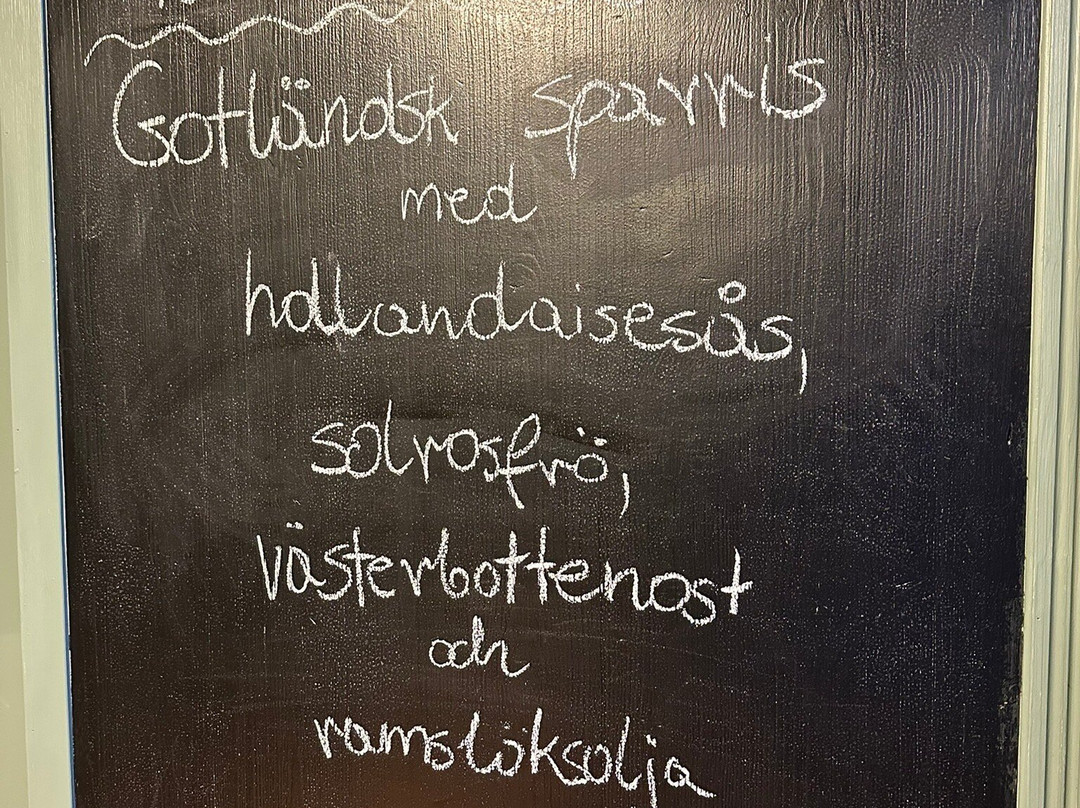 Gotländsk sparris
med
hollandaisesås,
solrosfrö,
västerbottenost
och
ramslöksolja